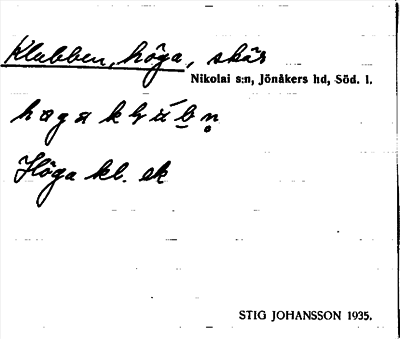 Klubben, höga, skär
Nikolai s:n, Jönåkers hd, Söd. l.
Höga kl. ek
STIG JOHANSSON 1935.